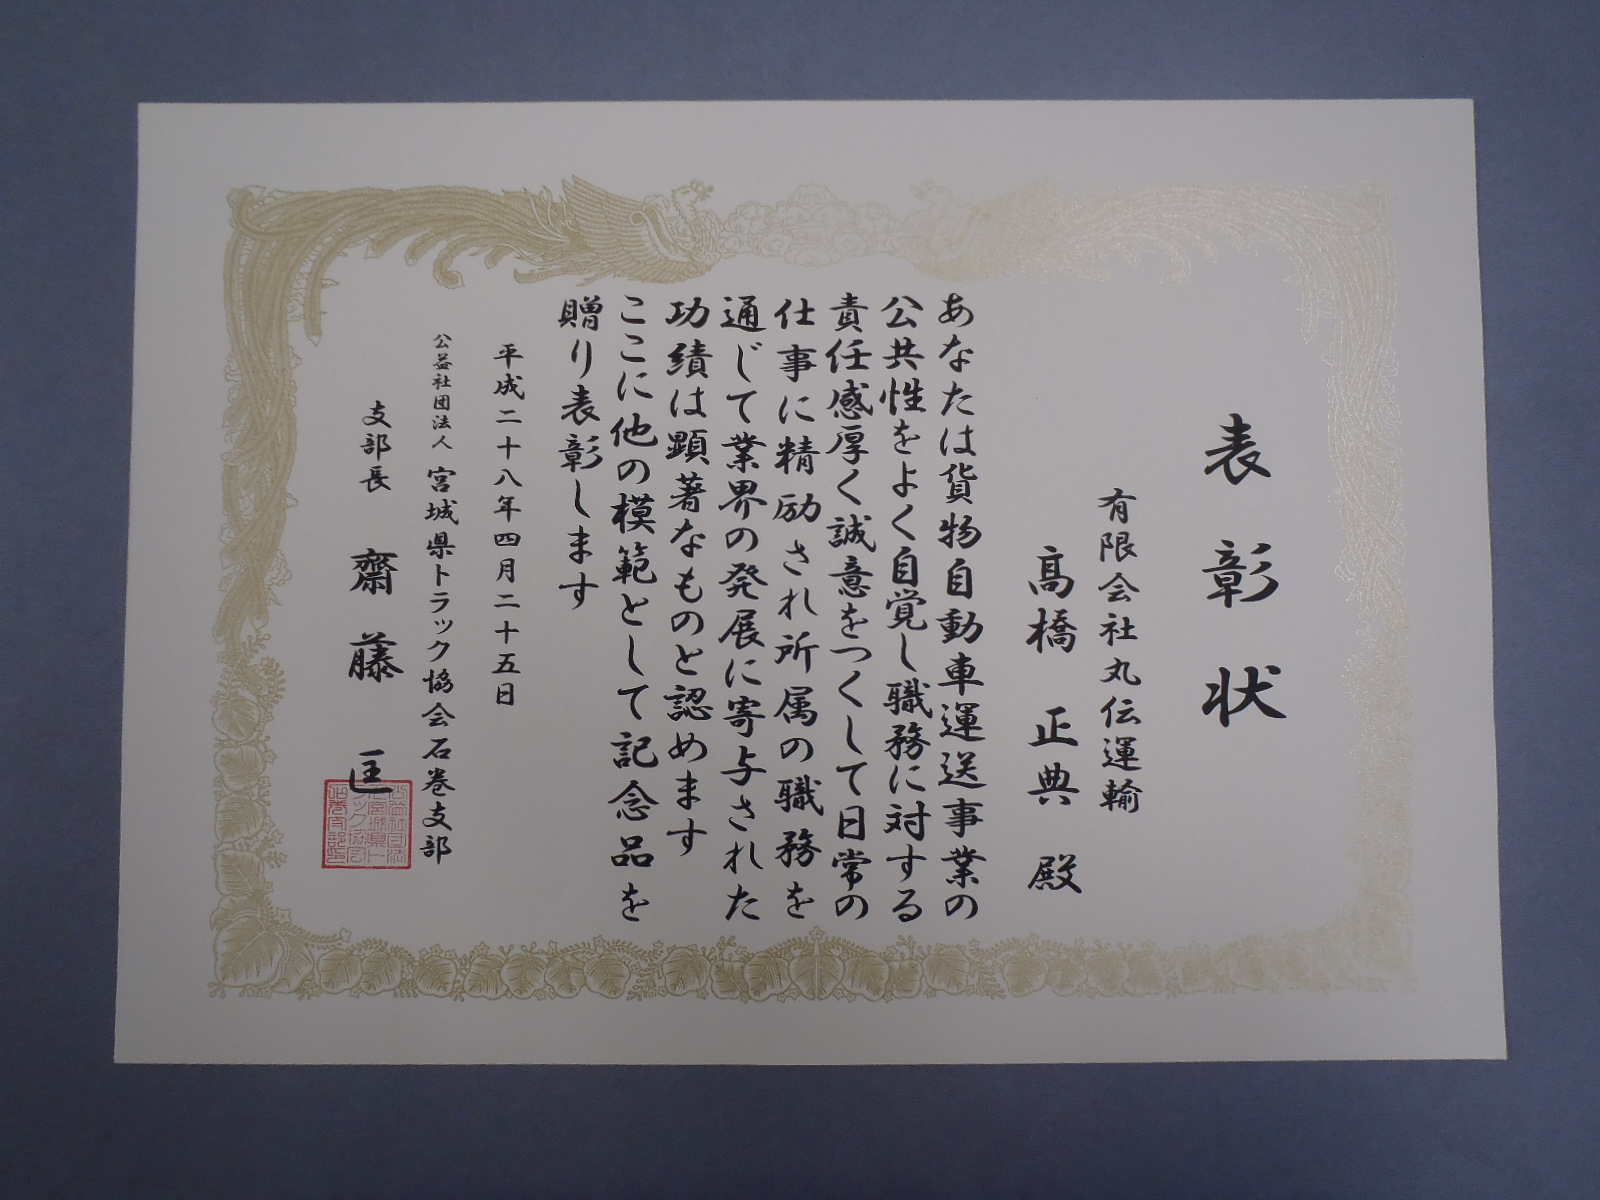 表彰状
有限会社丸伝運輸
髙橋正典殿
あなたは貨物自動車運送事業の
公共性をよく自覚し職務に対する
責任感厚く誠意をつくして日常の
仕事に精励され所属の職務を
通じて業界の発展に寄与された
功績は顕著なものと認めます
ここに他の模範として記念品を
贈り表彰します
平成二十八年四月二十五日
公益社団法人宮城県トラック協会石巻支部
支部長 齋藤匡